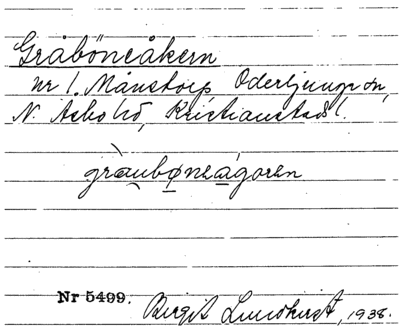 Gråböneåkern
nr 1. Månstorp Oderljunga sn,
N. Åsbo hd, Kristianstads l.
gràubøneágoren
Nr 5499.
Birgit Lundkvist, 1938.